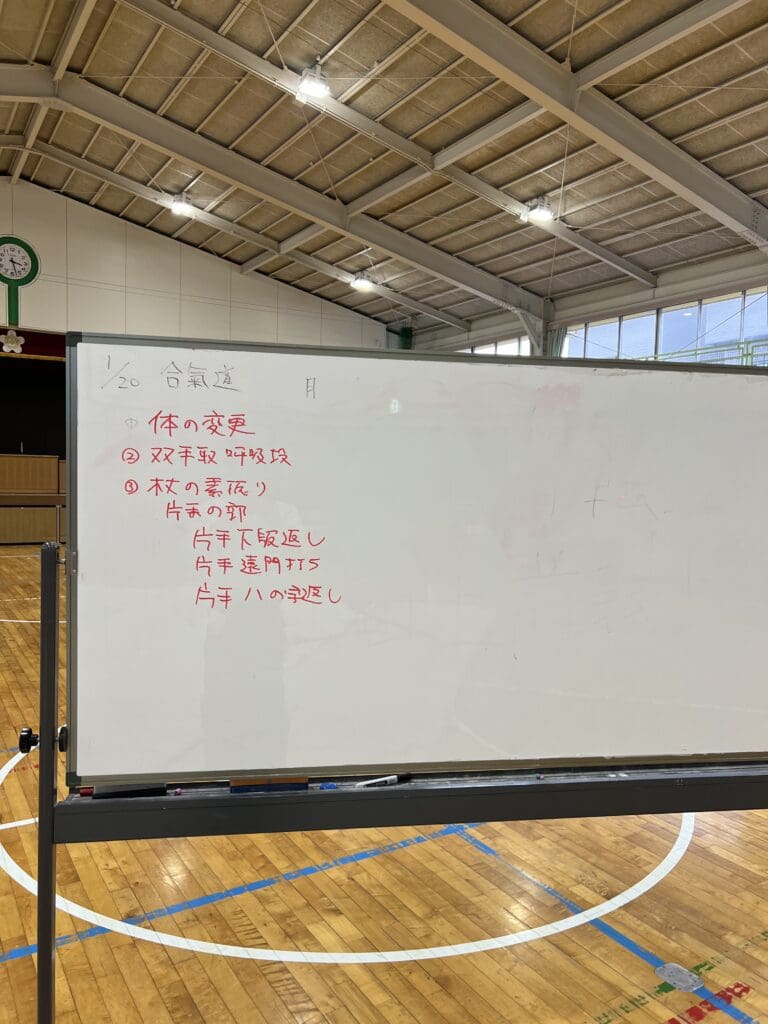 1/20 合氣道 月
① 体の変更
② 双手取 呼吸投
③ 杖の素振り
片手の部
片手下段返し
片手遠間打ち
片手八の字返し